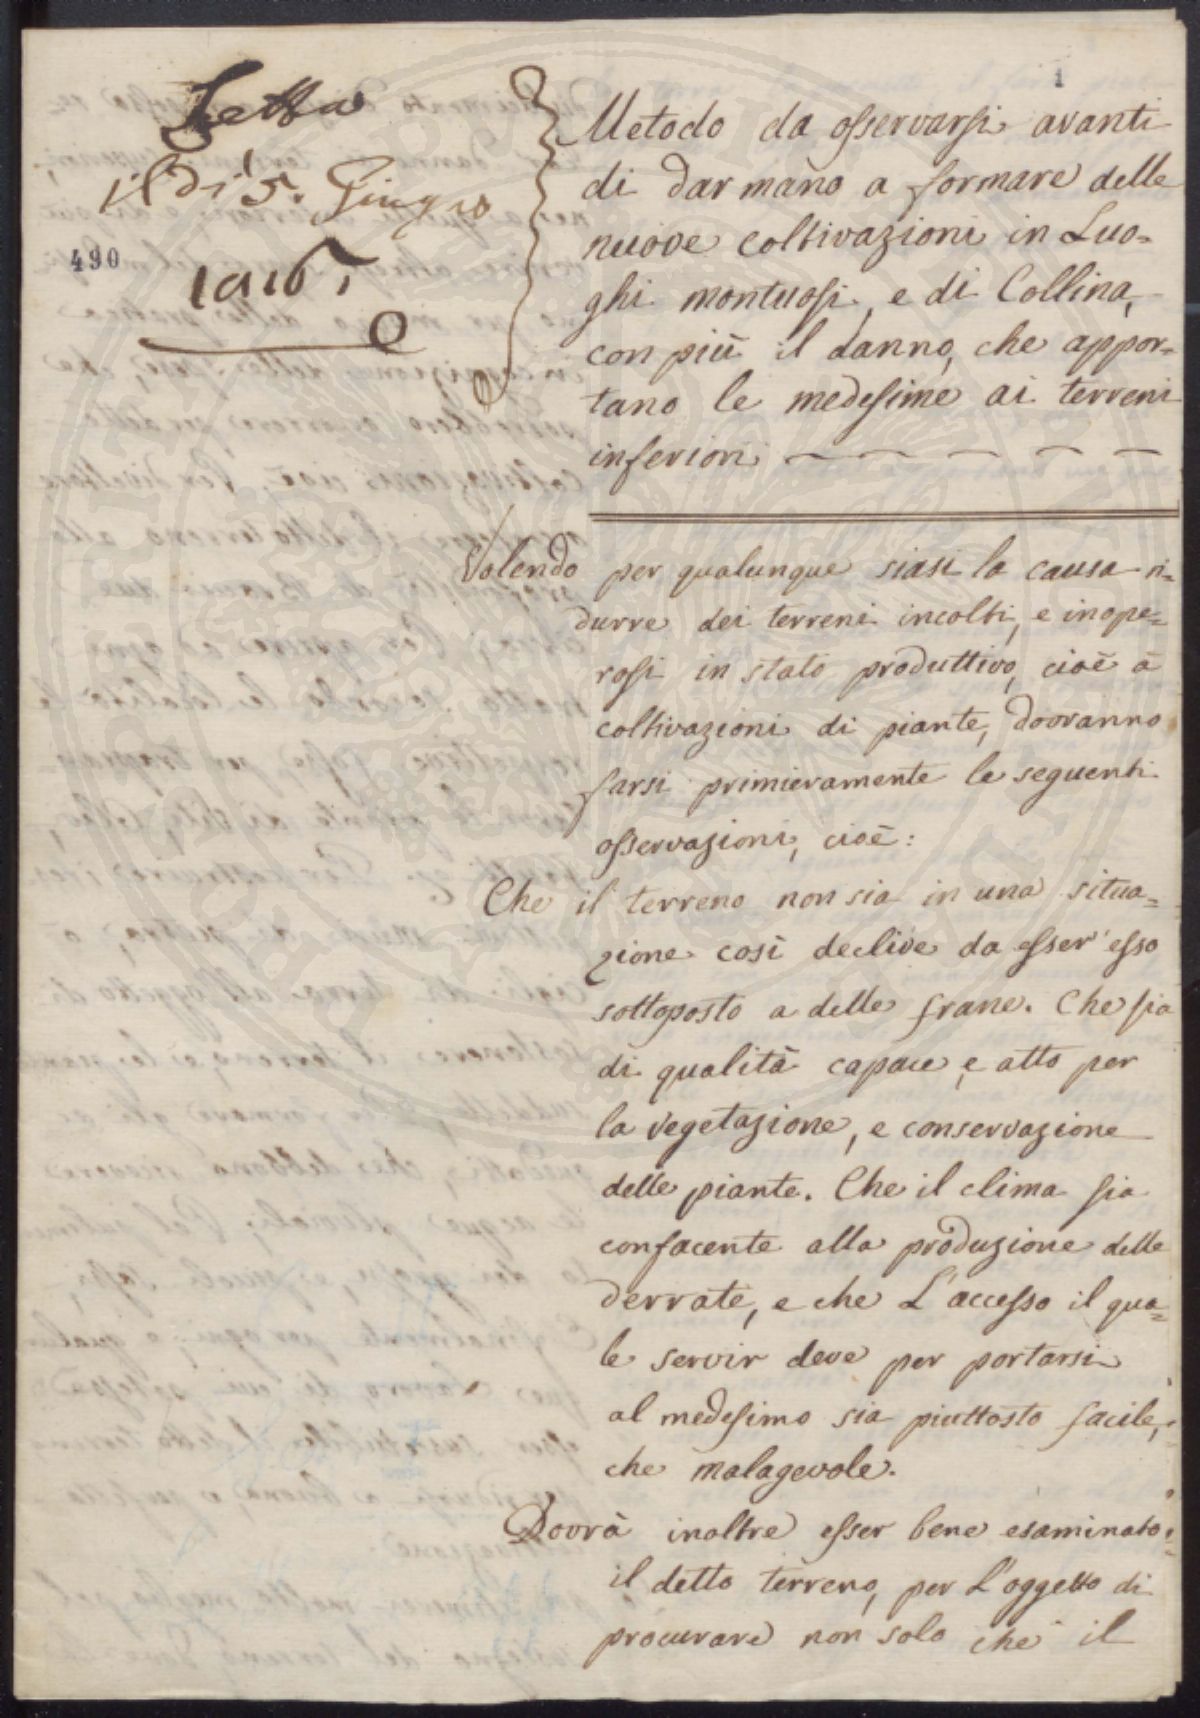 1
Letta
il dì 5. Giugno
490
1816.
Metodo da osservarsi avanti
di dar mano a formare delle
nuove coltivazioni in Luo=
ghi montuosi, e di Collina,
con più il danno, che appor=
tano le medesime ai terreni
inferiori
Volendo per qualunque siasi la causa ri=
durre dei terreni incolti, e inope=
rosi in stato produttivo, cioè à
coltivazioni di piante, dovranno
farsi primieramente le seguenti
osservazioni, cioè:
Che il terreno non sia in una situa=
zione così declive da esser' esso
sottoposto a delle frane. Che sia
di qualità capace, e atto per
la vegetazione, e conservazione
delle piante. Che il clima sia
confacente alla produzione delle
derrate, e che L'accesso il qua=
le servir deve per portarsi
al medesimo sia piuttosto facile,
che malagevole.
Dovrà inoltre esser bene esaminato
il detto terreno, per L'oggetto di
procurare non solo che il